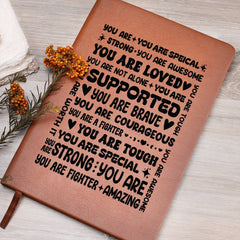 YOU ARE + YOU ARE SPEICAL
STRONG · YOU ARE AWESOME
YOU ARE LOVED
YOU ARE NOT ALONE + YOU ARE
SUPPORTED
YOU ARE BRAVE
YOU ARE COURAGEOUS
YOU ARE A FIGHTER
YOU ARE TOUGH
YOU ARE SPECIAL
STRONG YOU ARE
YOU ARE FIGHTER + AMAZING
YOU ARE TOUGH
YOU ARE AWESOME